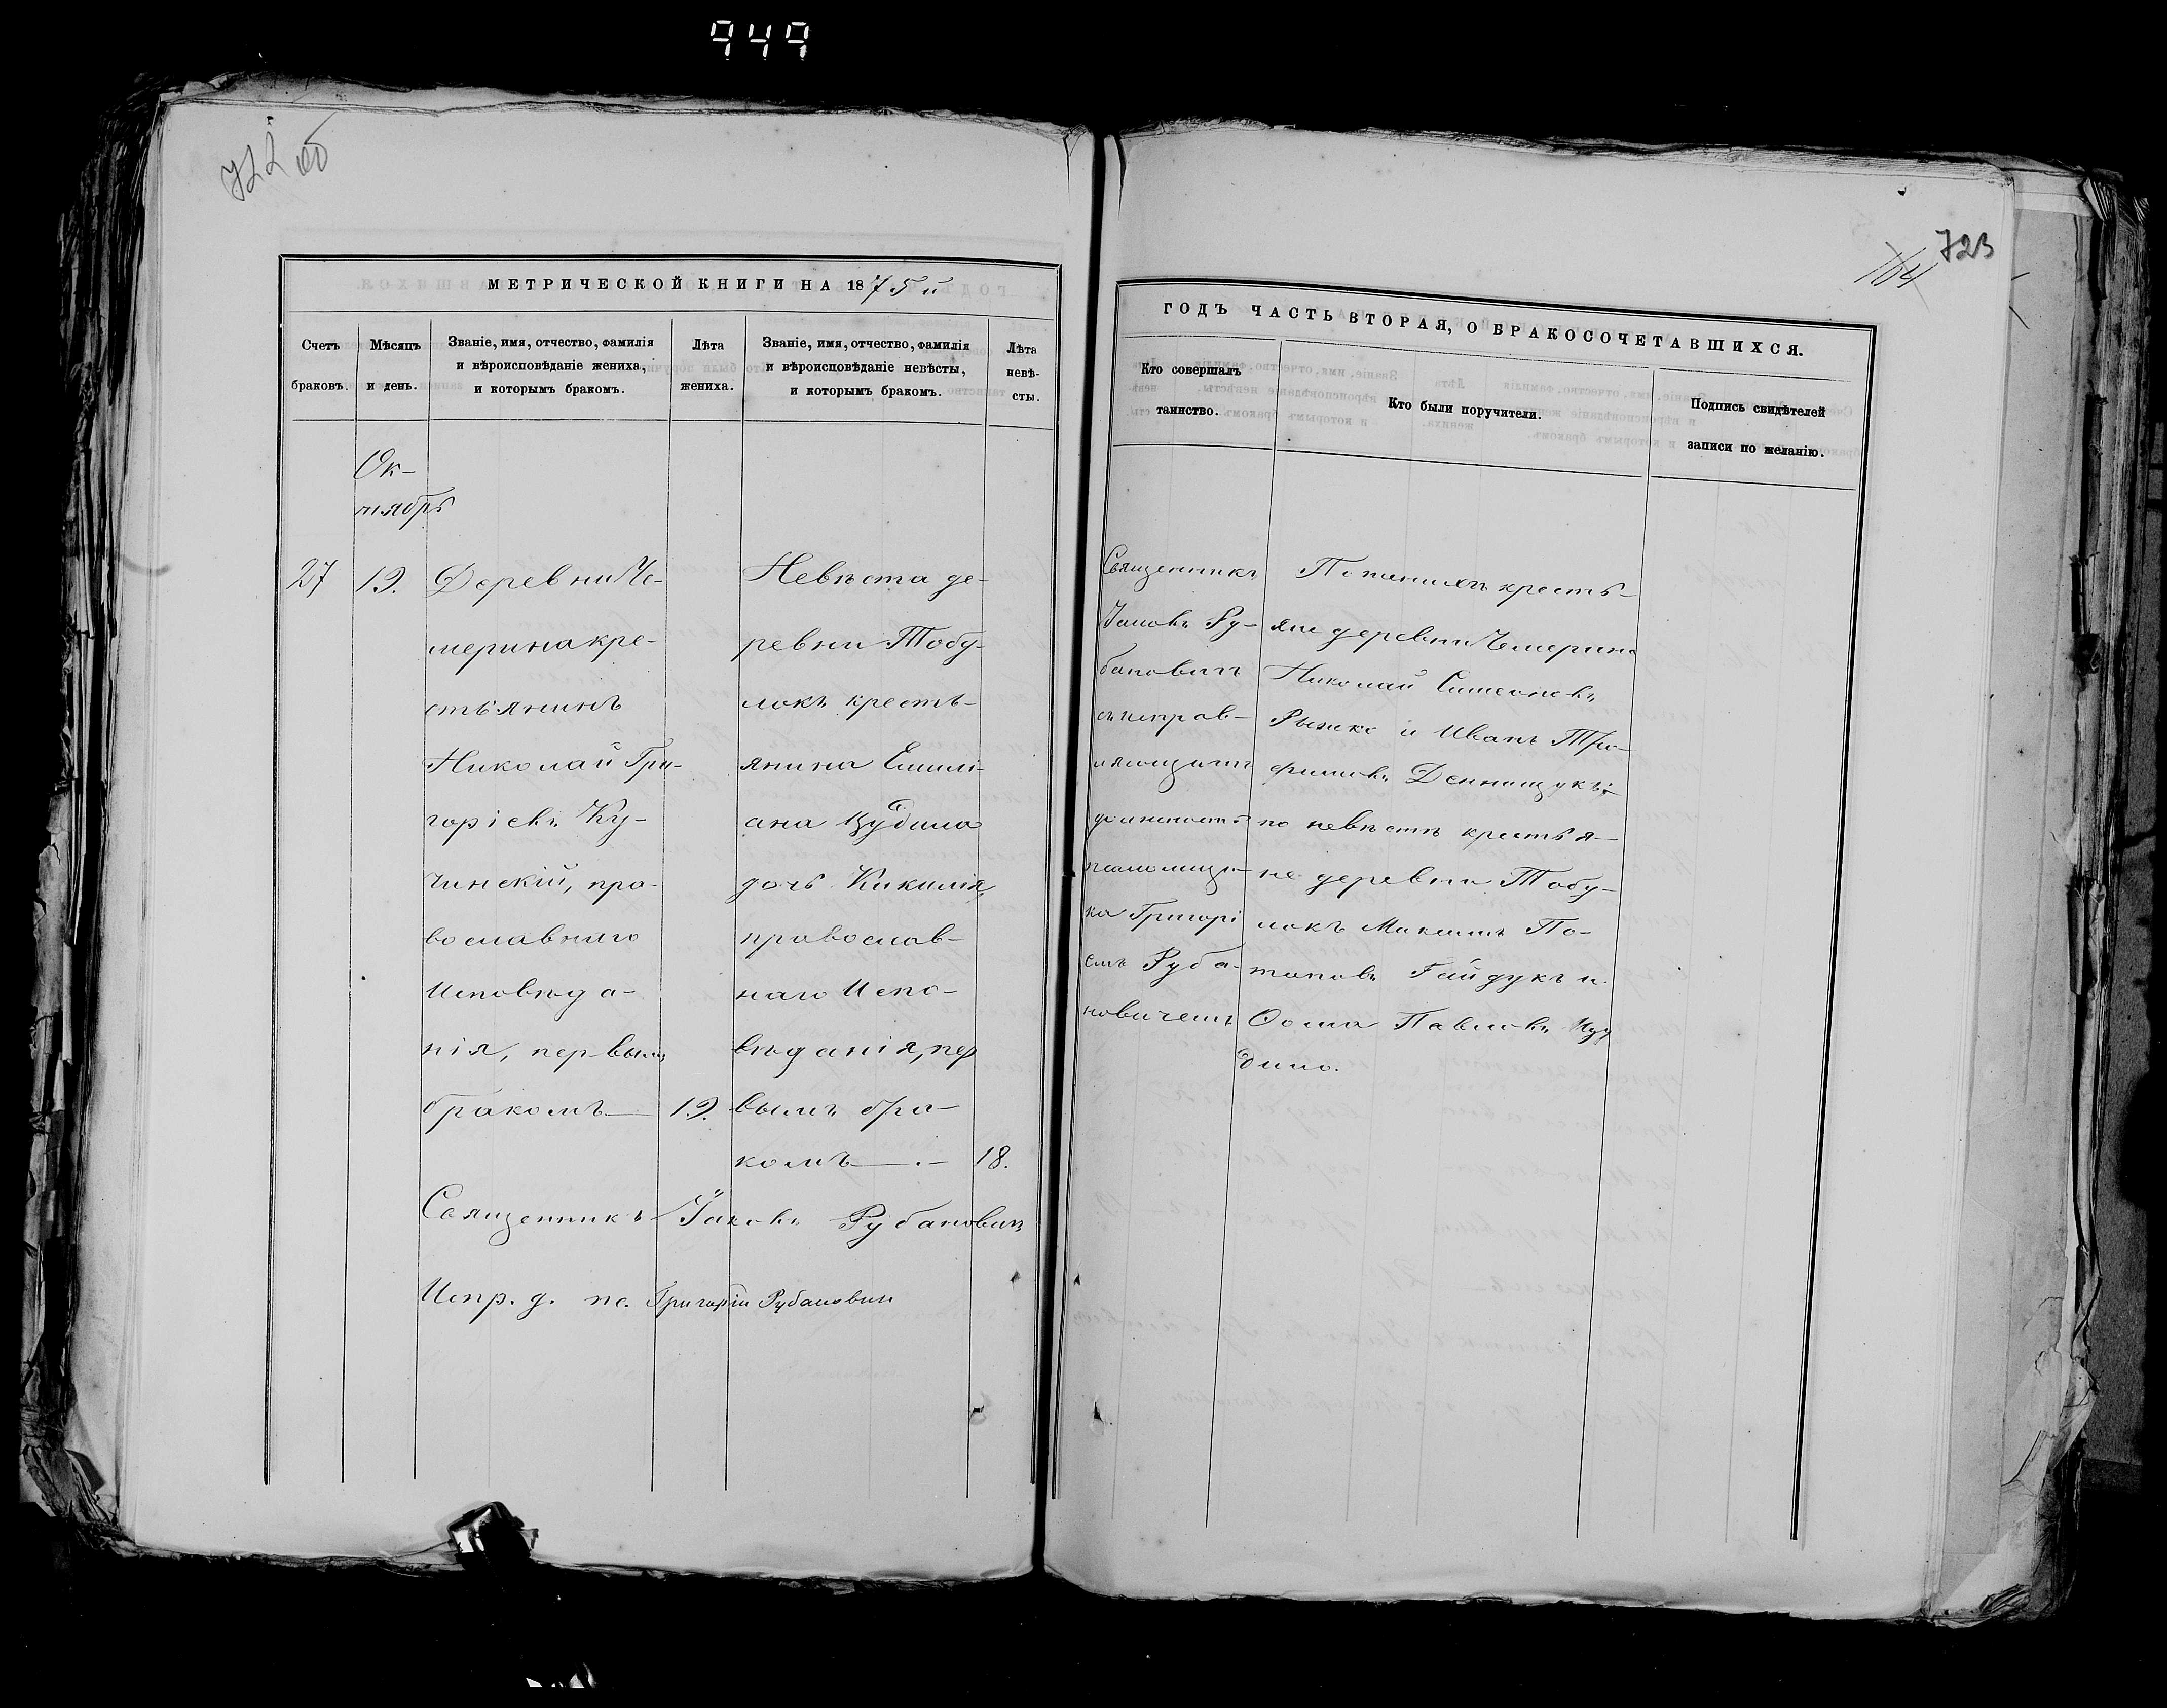 949
722 об
МЕТРИЧЕСКОЙ КНИГИ НА 1875й
Счетъ
браковъ.
Мѣсяцъ
и день.
Званіе, имя, отчество, фамилія
и вѣроисповѣданіе жениха,
и которымъ бракомъ.
Лѣта
жениха.
Званіе, имя, отчество, фамилія
и вѣроисповѣданіе невѣсты,
и которымъ бракомъ.
Лѣта
невѣ-
сты.
Ок-
тябрь
27
19.
Деревни Че-
мерина кре-
стьянинъ
Николай Гри-
горіевъ Ку-
чинскій, пра-
вославнаго
Исповѣда-
нія, первымъ
бракомъ
19.
Невѣста де-
ревни Тобу-
локъ кресть-
янина Емилі-
ана Цудила
дочь Кикилія,
православ-
наго Испо-
вѣданія, пер
вымъ бра-
комъ
18.
Священникъ Іаковъ Рубановичъ
Испр. д. пс. Григорій Рубановичъ
723
164
ГОДЪ ЧАСТЬ ВТОРАЯ, О БРАКОСОЧЕТАВШИХСЯ.
Кто совершалъ
таинство.
Кто были поручители.
Подпись свидѣтелей
записи по желанію.
Священникъ
Іаковъ Ру-
бановичъ
съ исправ-
ляющимъ
должность
псаломщи-
ка Григорі
емъ Руба-
новичемъ
По женихѣ кресть-
яне деревни Чемерина
Николай Симеоновъ
Рыжко и Иванъ Тро-
фимовъ Деннищукъ;
по невѣстѣ крестья-
не деревни Тобу-
локъ Максимъ По-
таповъ Гайдукъ и
Ѳома Павловъ Цу
дило.